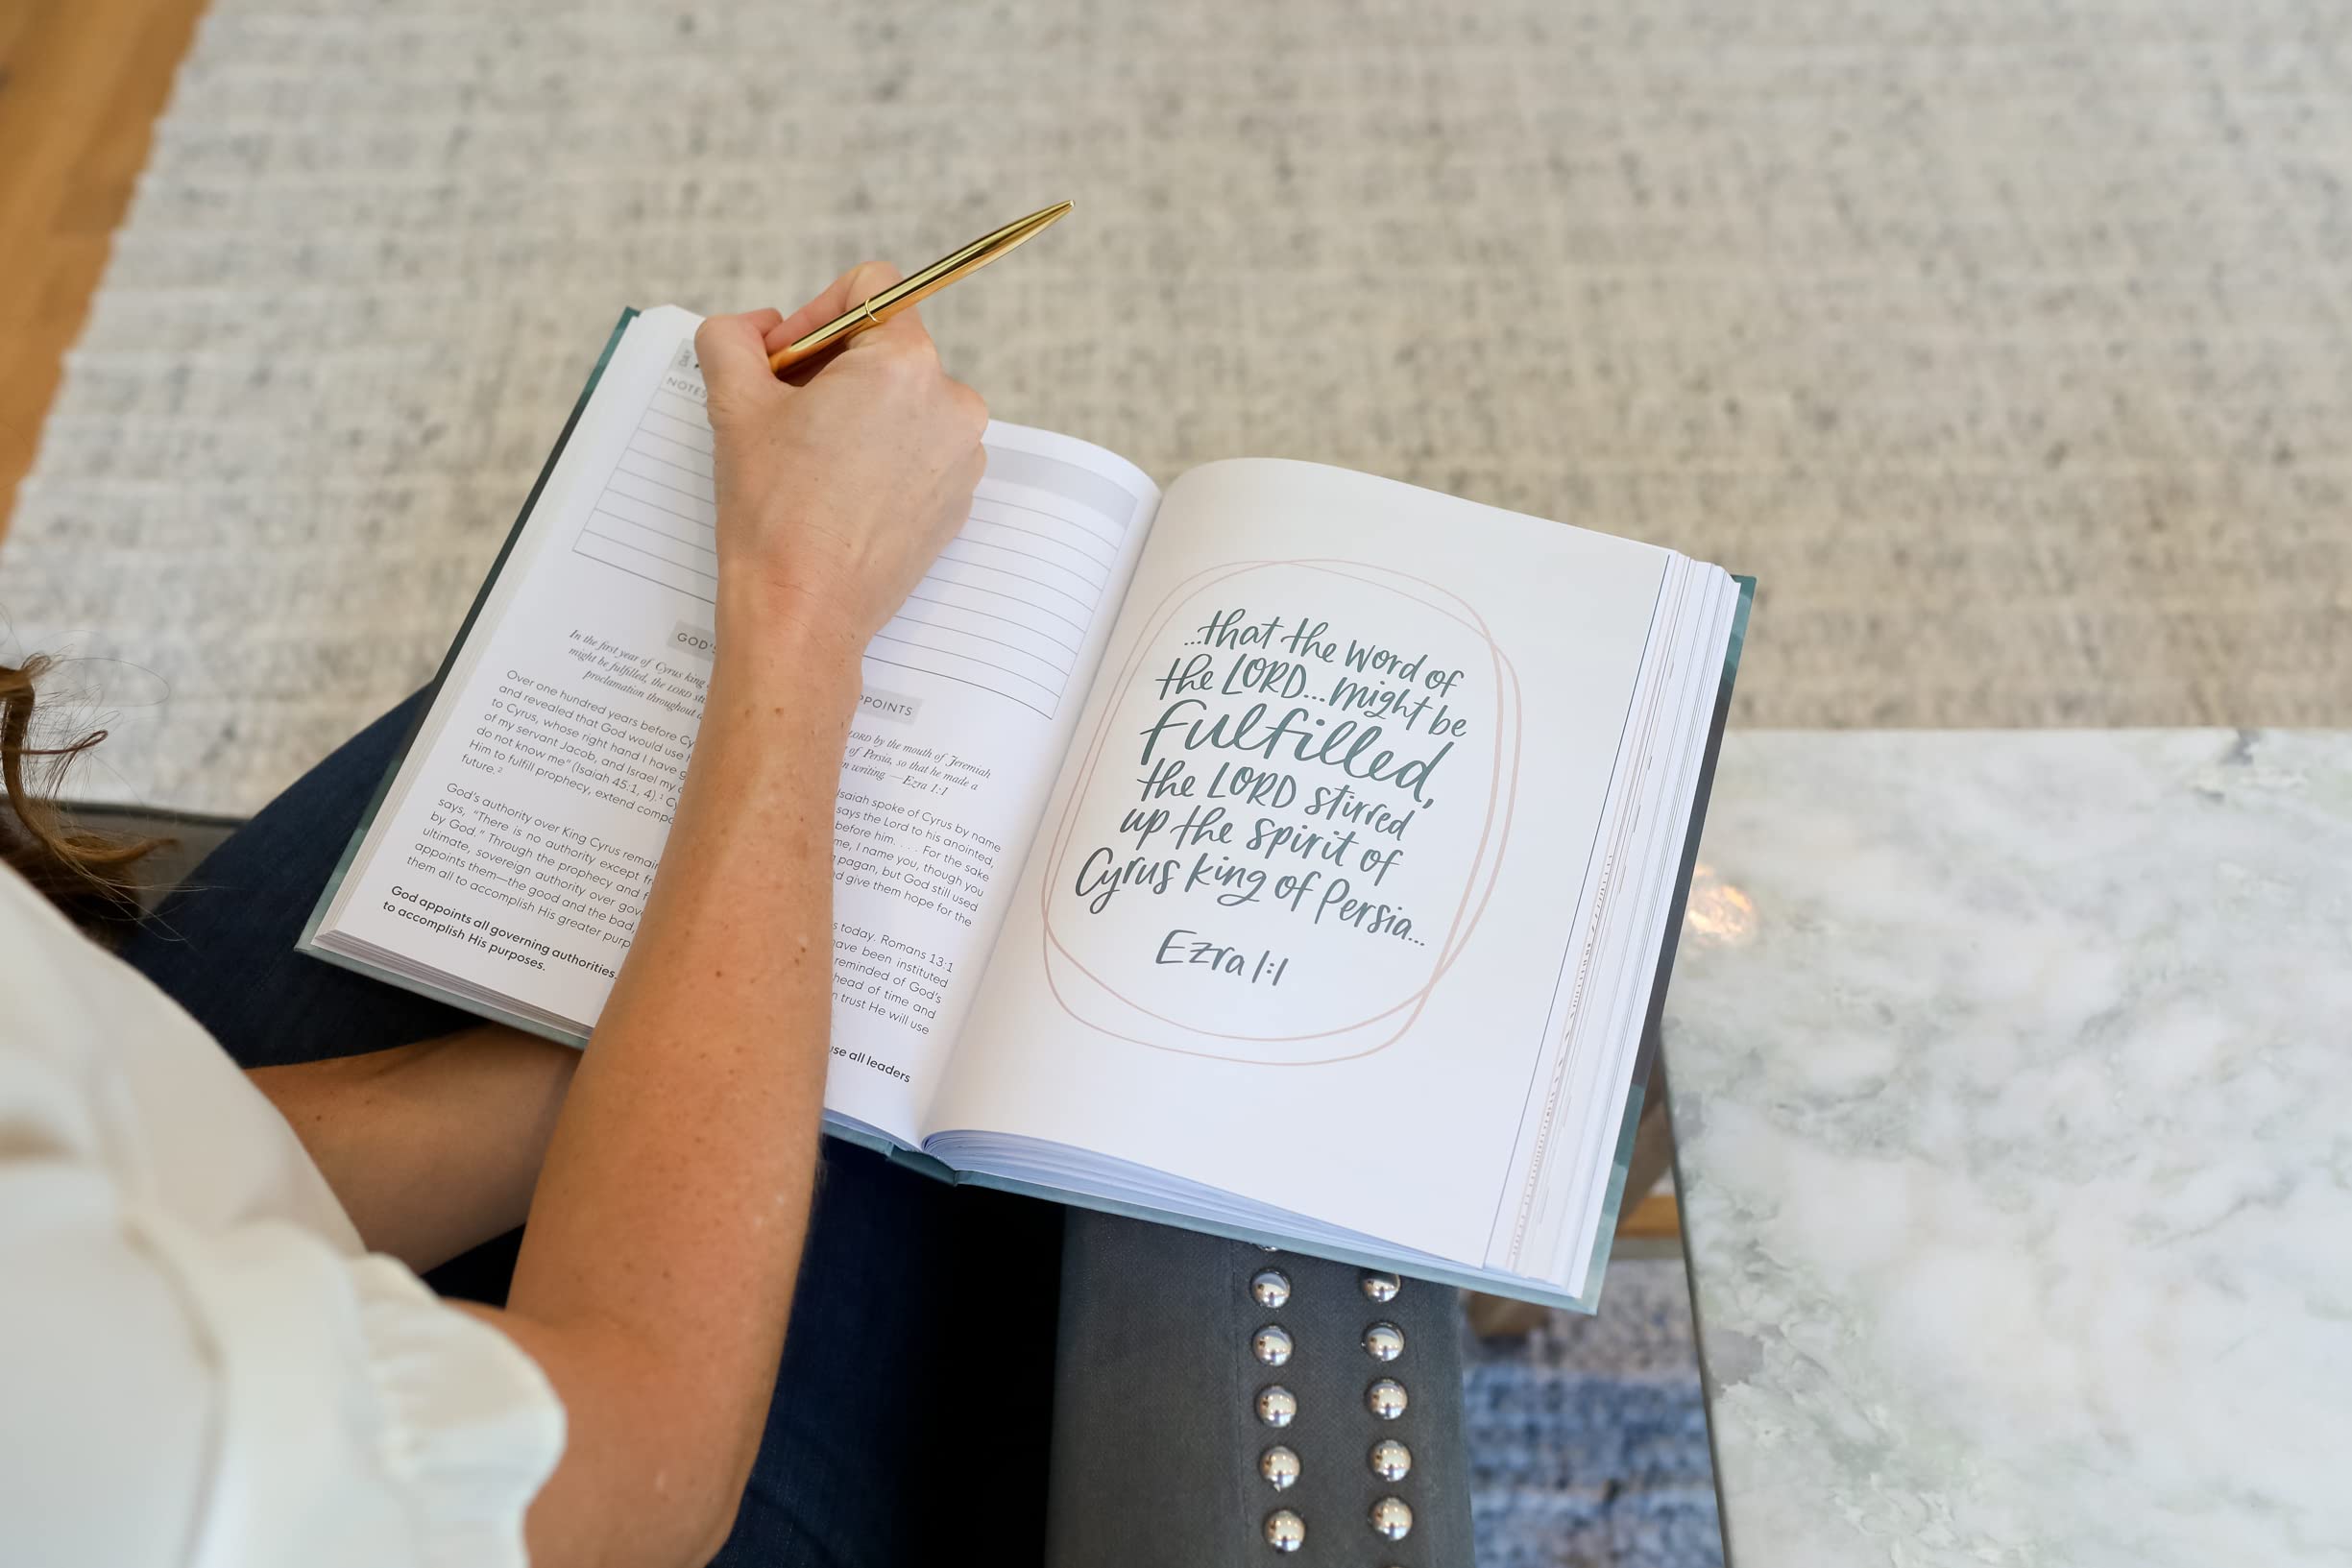 DAY
NOTES
GOD'S
PPOINTS
In the first year of Cyrus king
LORD by the mouth of Jeremiah
might be fulfilled, the LORD
of Persia, so that he made a
proclamation throughout
writing. —Ezra 1:1
Over one hundred years before
Isaiah spoke of Cyrus by name
and revealed that God would use
says the Lord to his anointed,
to Cyrus, whose right hand I have
before him. . . . For the sake
of my servant Jacob, and Israel my
me, I name you, though you
do not know me" (Isaiah 45:1, 4).¹
pagan, but God still used
Him to fulfill prophecy, extend
give them hope for the
future.²
God's authority over King Cyrus
today. Romans 13:1
says, "There is no authority except
have been instituted
by God." Through the prophecy and
reminded of God's
ultimate, sovereign authority over
ahead of time and
appoints them—the good and the bad,
trust He will use
them all to accomplish His greater
God appoints all governing authorities.
use all leaders
to accomplish His purposes.
...that the word of
the LORD...might be
fulfilled,
the LORD stirred
up the spirit of
Cyrus king of Persia...
Ezra 1:1